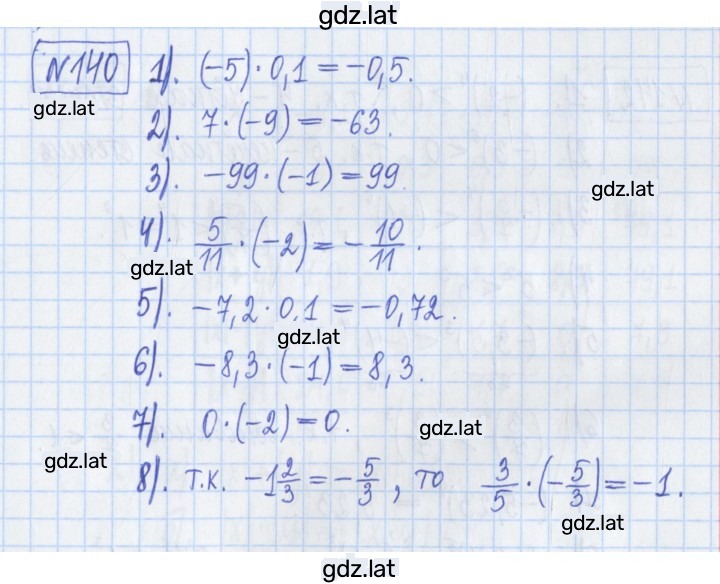 gdz.lat
№140 1). (-5)·0,1=-0,5.
gdz.lat
2). 7·(-9)=-63.
3). -99·(-1)=99.
gdz.lat
4). 5/11·(-2)=-10/11.
gdz.lat
5). -7,2·0,1=-0,72.
gdz.lat
6). -8,3·(-1)=8,3.
7). 0·(-2)=0.
gdz.lat
gdz.lat
8). Т.К. -1 2/3=-5/3, то 3/5·(-5/3)=-1.
gdz.lat
gdz.lat